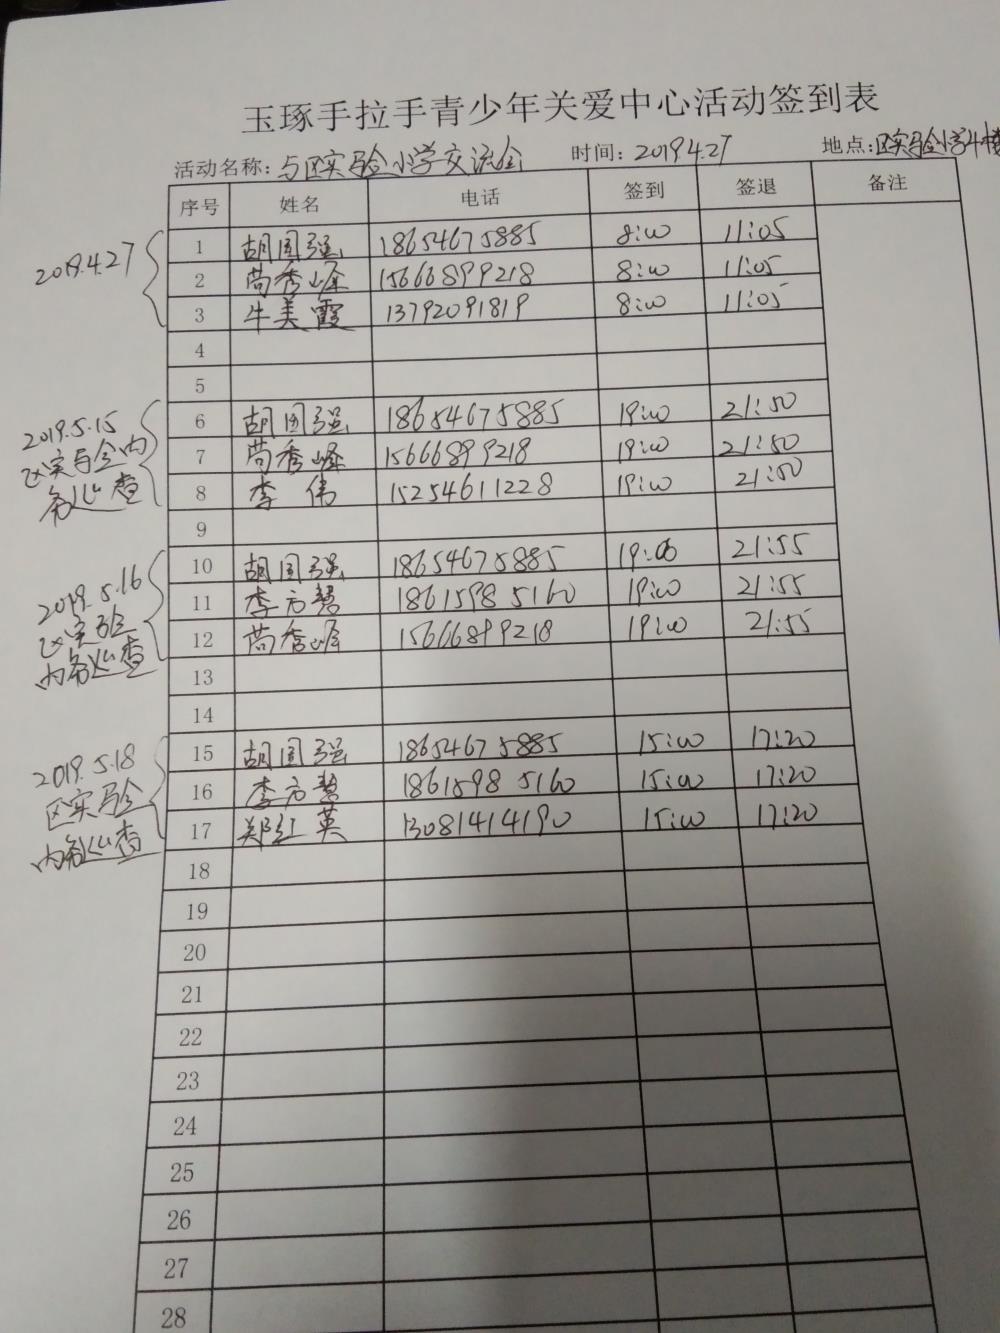 玉琢手拉手青少年关爱中心活动签到表
活动名称: 与区实验小学交流会 时间: 2019.4.27 地点: 区实验小学4楼
序号 姓名 电话 签到 签退 备注
2019.4.27
1 胡国强 18654675885 8:00 11:05
2 苘秀峰 15666899218 8:00 11:05
3 牛美霞 13792091819 8:00 11:05
4
5
2019.5.15
区实验会内
务巡查
6 胡国强 18654675885 19:00 21:50
7 苘秀峰 15666899218 19:00 21:50
8 李伟 15254611228 19:00 21:50
9
2019.5.16
区实验
内务巡查
10 胡国强 18654675885 19:00 21:55
11 李方慧 18615985160 19:00 21:55
12 苘秀峰 15666899218 19:00 21:55
13
14
2019.5.18
区实验
内务巡查
15 胡国强 18654675885 15:00 17:20
16 李方慧 18615985160 15:00 17:20
17 郑红英 13081414190 15:00 17:20
18
19
20
21
22
23
24
25
26
27
28